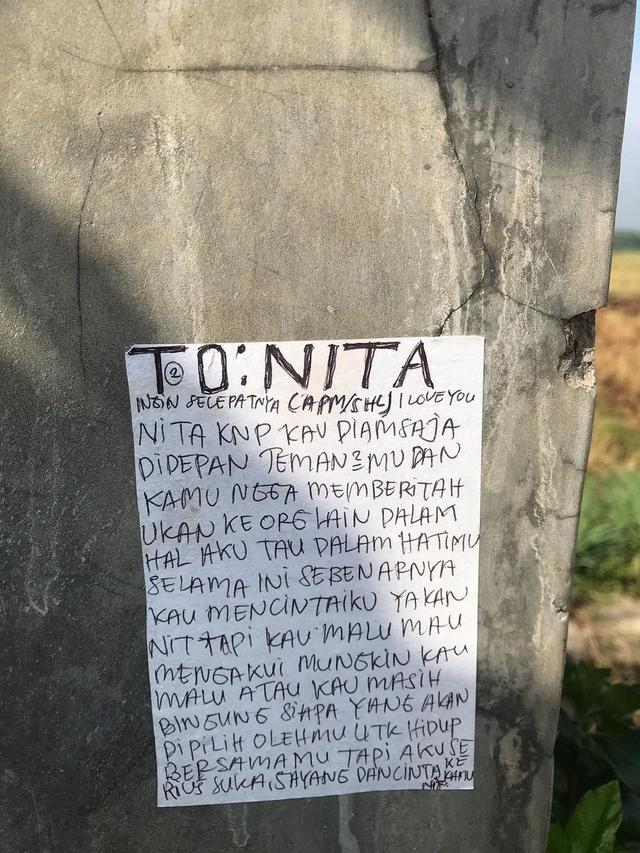 TO: NITA
②
INGIN SECEPATNYA (APM/SHL) I LOVE YOU
NITA KNP KAU DIAMSAJA
DIDEPAN TEMAN2MU DAN
KAMU NGGA MEMBERITAH
UKAN KE ORG LAIN DALAM
HAL AKU TAU DALAM HATIMU
SELAMA INI SEBENARNYA
KAU MENCINTAIKU YA KAN
NIT TAPI KAU MALU MAU
MENGAKUI MUNGKIN KAU
MALU ATAU KAU MASIH
BINGUNG SIAPA YANG AKAN
DIPILIH OLEHMU UTK HIDUP
BERSAMAMU TAPI AKU SE
RIUS SUKA, SAYANG DAN CINTA KE
KAMU
NIT.